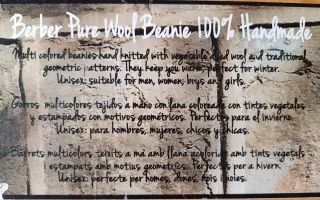 Berber Pure Wool Beanie 100% Handmade
Multi colored beanies hand knitted with vegetable dyed wool and traditional
geometric patterns. They keep you warm, perfect for winter.
Unisex: suitable for men, women, boys an girls.
Gorros multicolores tejidos a mano con lana coloreada con tintes vegetales
y estampados con motivos geométricos. Perfectos para el invierno.
Unisex: para hombres, mujeres, chicos y chicas.
Barrets multicolors, teixits a mà amb llana acolorida amb tints vegetals
i estampats amb motius geomètrics. Perfectes per a hivern.
Unisex: perfecte per homes, dones, nois i noies.